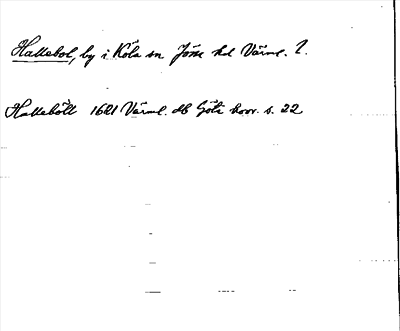 Hallebol, by i Köla sn Jösse hd Värml. l.
Halleböll 1621 Värml. db Göta hovr. s. 22